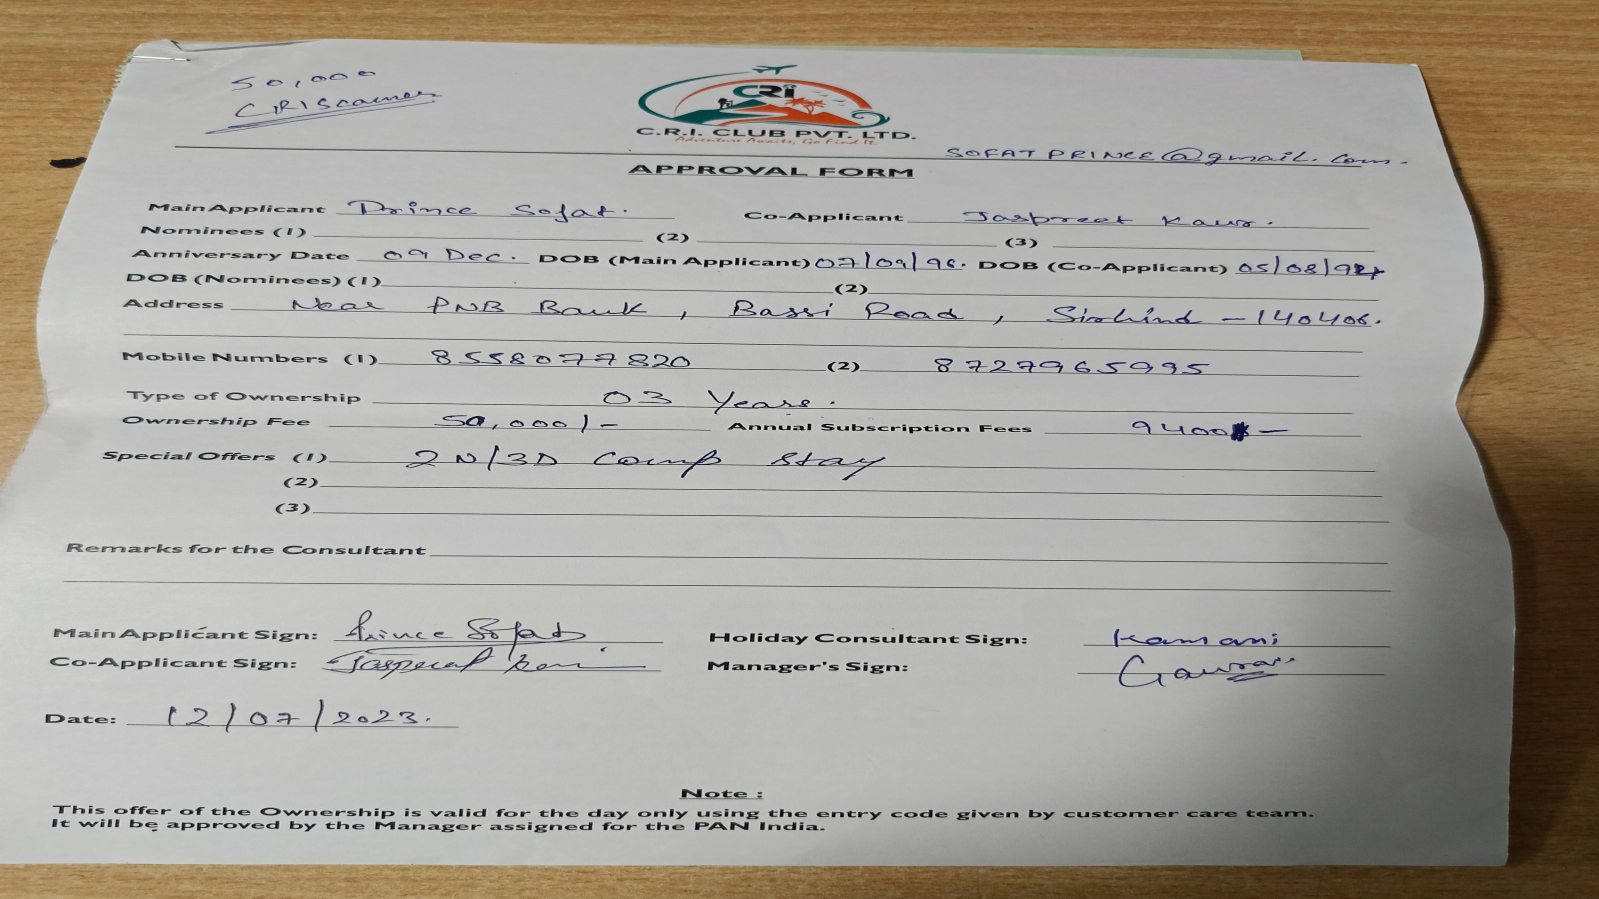 50,000
CRI Scamer
CRI
C.R.I. CLUB PVT. LTD.
Adventure Awaits, Go Find It.
SOFATPRINCE@gmail.com.
APPROVAL FORM
Main Applicant Prince Sofat. Co-Applicant Jaspreet Kaur.
Nominees (1) (2) (3)
Anniversary Date 09 Dec. DOB (Main Applicant) 07/09/96. DOB (Co-Applicant) 05/08/
DOB (Nominees) (1) (2)
Address Near PNB Bank, Bassi Road, Sirhind - 140406.
Mobile Numbers (1) 8558077820 (2) 8727965995
Type of Ownership 03 Years.
Ownership Fee 50,000/- Annual Subscription Fees 9400/-
Special Offers (1) 2N/3D Comp Stay
(2)
(3)
Remarks for the Consultant
Main Applicant Sign: Prince Sofat Holiday Consultant Sign: Kamani
Co-Applicant Sign: Jaspreet Manager's Sign: Gaurav
Date: 12/07/2023.
Note :
This offer of the Ownership is valid for the day only using the entry code given by customer care team.
It will be approved by the Manager assigned for the PAN India.